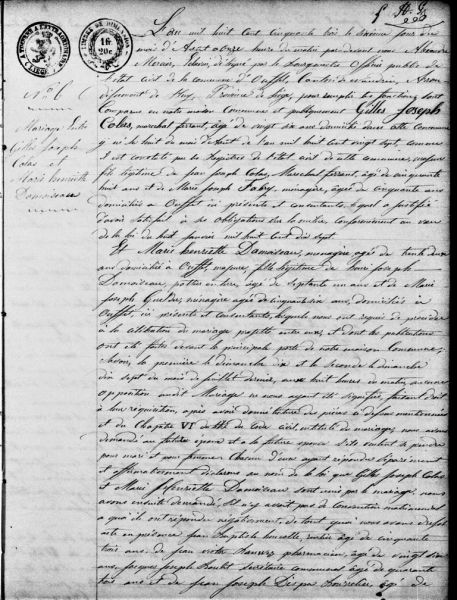 N° 6
Mariage Entre
Gille Joseph
Colas et
Marie henriette
Damoiseau
L'an mil huit cent cinquante trois le sixième jour du
mois de Aout onze heures du matin par devant nous Alexandre
de par le Bourgmestre Officier public de
l'état civil de la commune d'Ouffet, Canton de nandrin, Arron
dissement de Huy, Province de Liége, pour remplir les fonctions, sont
Comparus en notre maison Commune et publiquement Gilles Joseph
Colas, marechal ferrant, agé de vingt six ans domicilié dans cette Commune
y né le huit du mois de de l'an mil huit cent vingt sept, comme
il est constaté par les registres de l'état civil de cette commune, majeur
fils légitime de Jean Joseph Colas, Marechal ferrant, agé de cinquante
huit ans et de Marie Joseph Fabry, ménagère, agée de cinquante ans
domiciliés à Ouffet ici présents et consentants, lequel a justifié
d'avoir satisfait à ses obligations sur la milice, conformément au vœu
de la loi du huit janvier mil huit cent dix sept.
Et Marie henriette Damoiseau, ménagère agée de trente deux
ans domiciliée à Ouffet, majeure, fille légitime de Joseph
Damoiseau, agé de septante un ans et de Marie
Joseph ménagère agée de cinquante six ans, domiciliés à
Ouffet ici présents et consentants, lesquels nous ont requis de procéder
à la célébration du mariage projetté entre eux, et dont les publications
ont été faites devant la principale porte de notre maison Commune;
Savoir, la première le dimanche dix et la Seconde le dimanche
dix sept du mois de juillet dernier, à huit heures du matin, aucune
opposition audit Mariage ne nous ayant été signifiée, faisant droit
à leur réquisition, après avoir donné lecture des pièces ci dessus mentionnées
et du Chapitre VI du titre du Code civil, intitulé du mariage, nous avons
demandé au futur époux et à la future épouse s'ils veulent se prendre
pour mari et pour femme, Chacun d'eux ayant répondu séparément
et affirmativement déclarons au nom de la loi que Gilles Joseph Colas
et Marie henriette Damoiseau sont unis par le mariage, nous
avons ensuite demandé s'il n'y avait pas de Convention matrimoniale
à quoi ils ont répondu négativement, de tout quoi nous avons dressé
acte en présence Jean Baptiste agé de cinquante
trois ans, de Jean pharmacien, agé de vingt
ans, Jacques Joseph secrétaire communal agé de quarante
ans et de Jean Joseph agé de